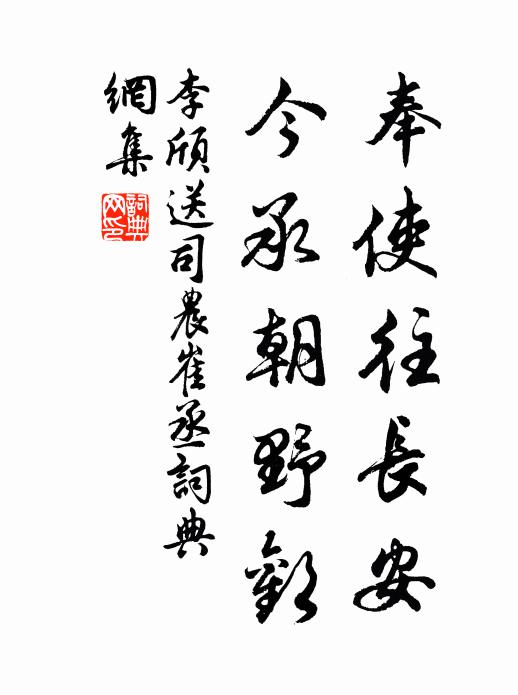 奉使往長安
今承朝野歡
李頎送司農崔丞詞典
網集
詞典
网印